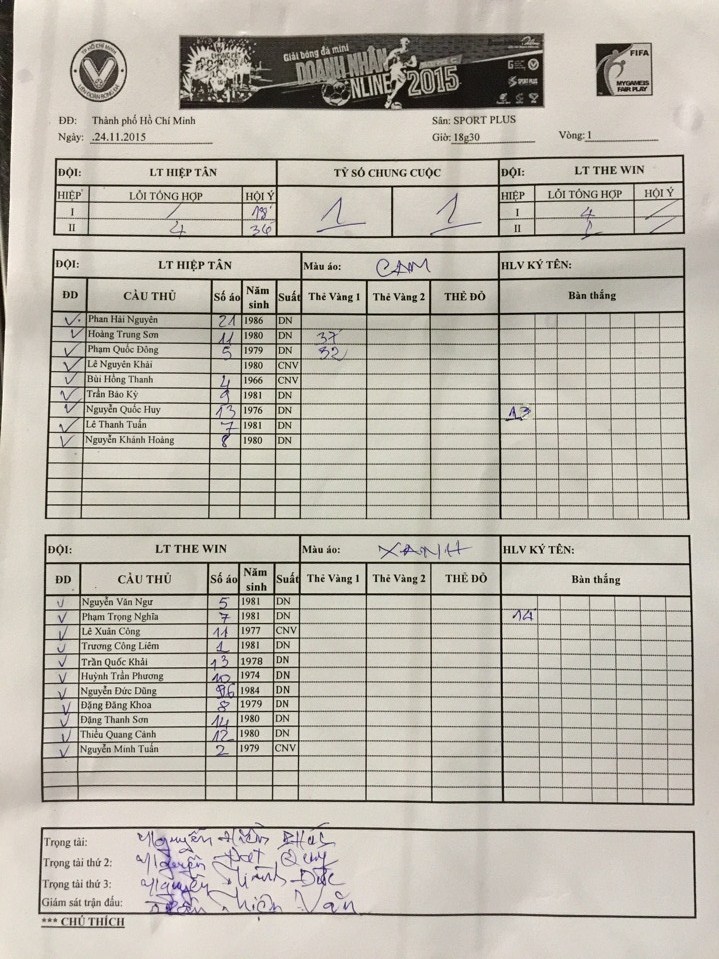 TP HỒ CHÍ MINH
LIÊN ĐOÀN BÓNG ĐÁ
Giải bóng đá mini
DOANH NHÂN
ONLINE 2015
SPORT PLUS
FIFA
MYGAME IS FAIR PLAY
ĐĐ: Thành phố Hồ Chí Minh Sân: SPORT PLUS
Ngày: .24.11.2015 Giờ: 18g30 Vòng: 1
ĐỘI: LT HIỆP TÂN TỶ SỐ CHUNG CUỘC ĐỘI: LT THE WIN
HIỆP LỖI TỔNG HỢP HỘI Ý 1 1 HIỆP LỖI TỔNG HỢP HỘI Ý
I / 18' I 4 /
II 4 36 II /
ĐỘI: LT HIỆP TÂN Màu áo: CAM HLV KÝ TÊN:
ĐD CẦU THỦ Số áo Năm sinh Suất Thẻ Vàng 1 Thẻ Vàng 2 THẺ ĐỎ Bàn thắng
Phan Hải Nguyên 21 1986 DN
Hoàng Trung Sơn 11 1980 DN 37
Phạm Quốc Đông 5 1979 DN 32
Lê Nguyên Khải 1980 CNV
Bùi Hồng Thanh 4 1966 CNV
Trần Bảo Kỳ 9 1981 DN
Nguyễn Quốc Huy 13 1976 DN 13
Lê Thanh Tuấn 7 1981 DN
Nguyễn Khánh Hoàng 8 1980 DN
ĐỘI: LT THE WIN Màu áo: XANH HLV KÝ TÊN:
ĐD CẦU THỦ Số áo Năm sinh Suất Thẻ Vàng 1 Thẻ Vàng 2 THẺ ĐỎ Bàn thắng
Nguyễn Văn Ngư 5 1981 DN
Phạm Trọng Nghĩa 7 1981 DN 14
Lê Xuân Công 11 1977 CNV
Trương Công Liêm 1 1981 DN
Trần Quốc Khải 13 1978 DN
Huỳnh Trần Phương 10 1974 DN
Nguyễn Đức Dũng 96 1984 DN
Đặng Đăng Khoa 8 1979 DN
Đặng Thanh Sơn 14 1980 DN
Thiều Quang Cảnh 12 1980 DN
Nguyễn Minh Tuấn 2 1979 CNV
Trọng tài: Nguyễn
Trọng tài thứ 2: Nguyễn
Trọng tài thứ 3: Nguyễn Minh Đức
Giám sát trận đấu: Trần Thiện Văn
*** CHÚ THÍCH